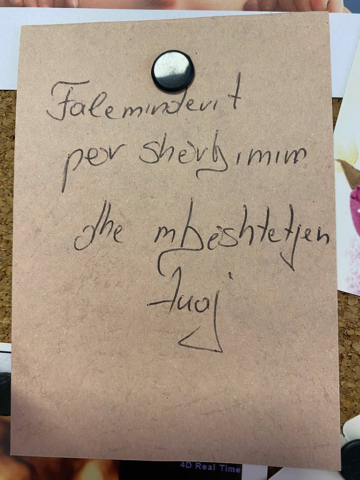 Faleminderit
per sherbimim
dhe mbeshtetjen
tuaj
4D Real Time